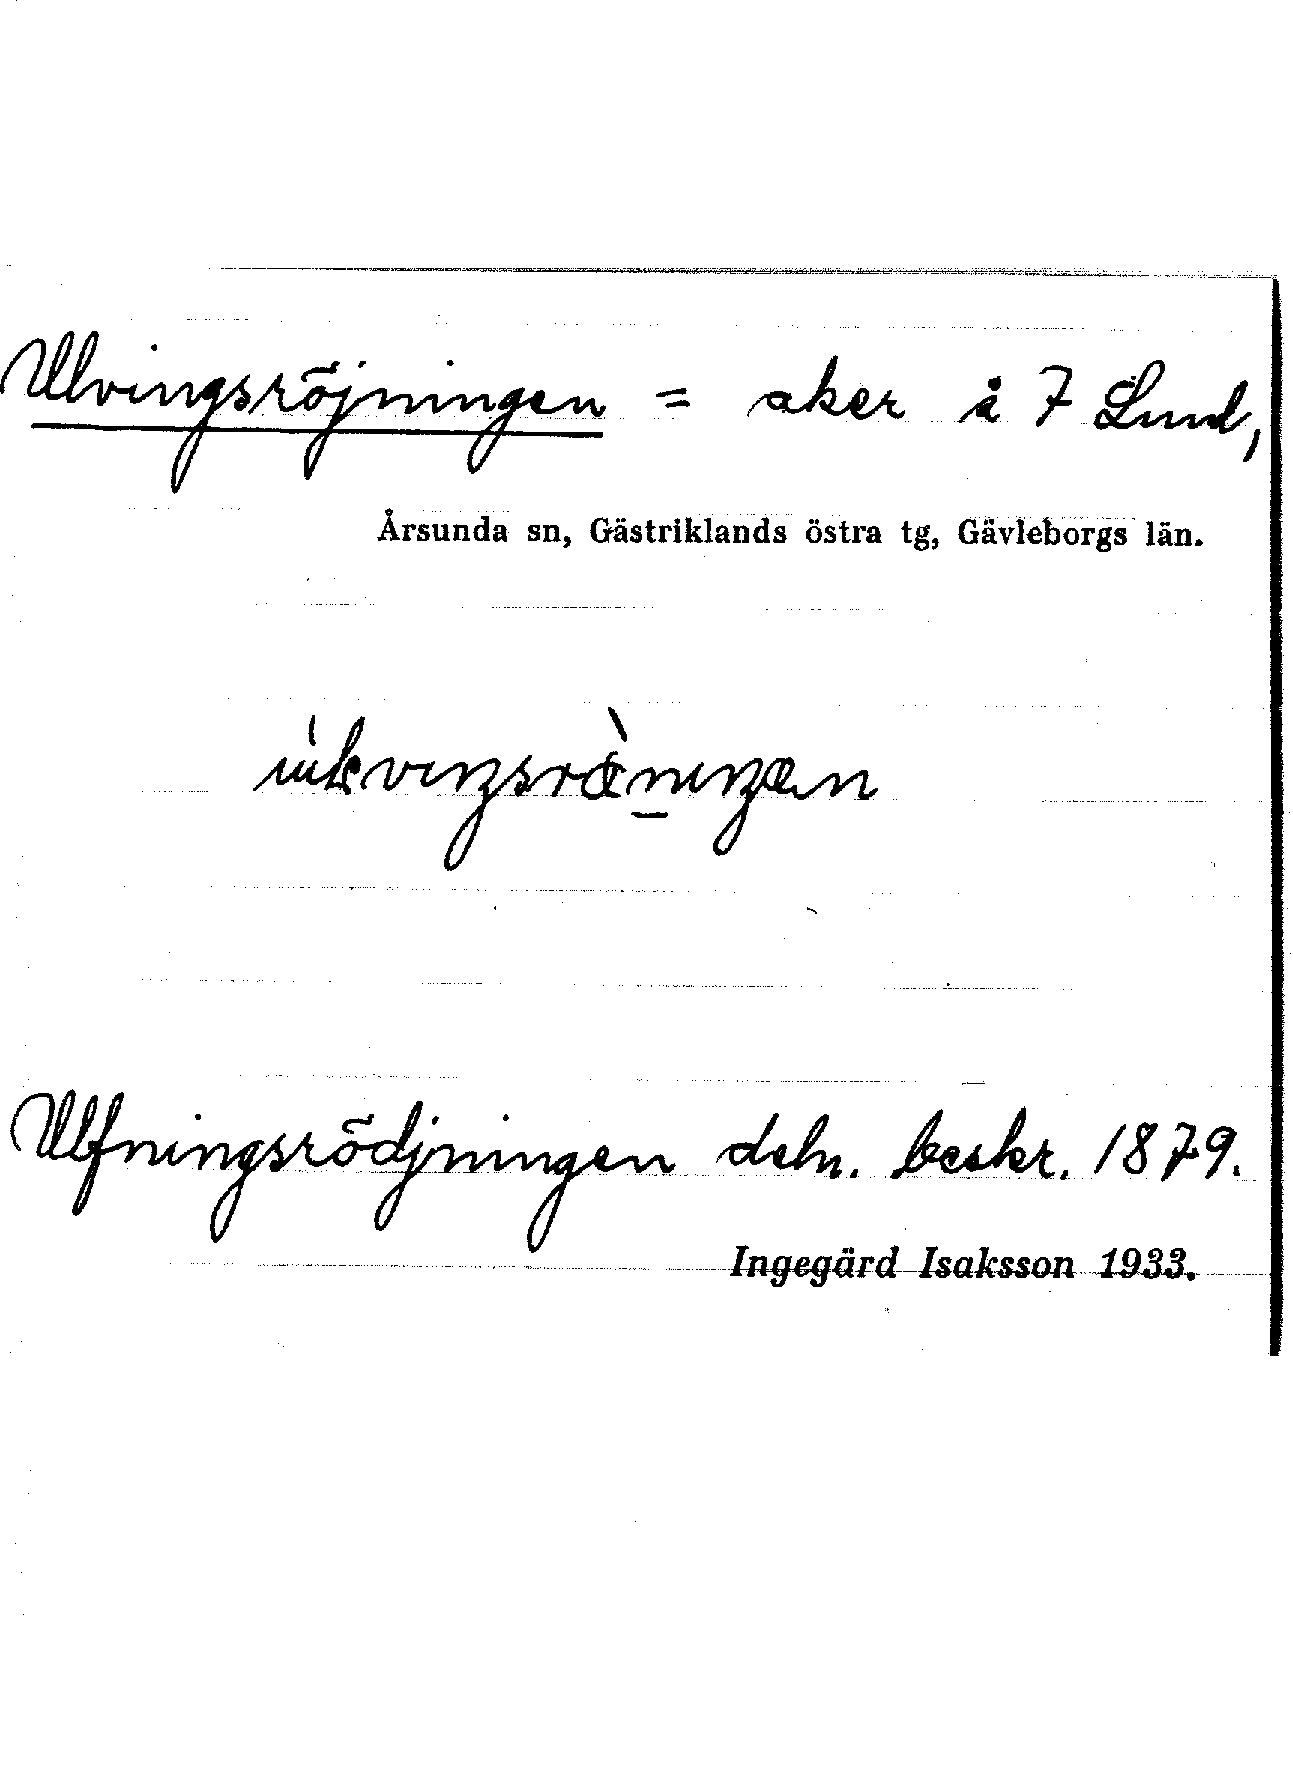 Ulvingsröjningen = aker å 7 Lund,
Årsunda sn, Gästriklands östra tg, Gävleborgs län.
Ulfningsrödjningen deln. beskr. 1879.
Ingegärd Isaksson 1933.